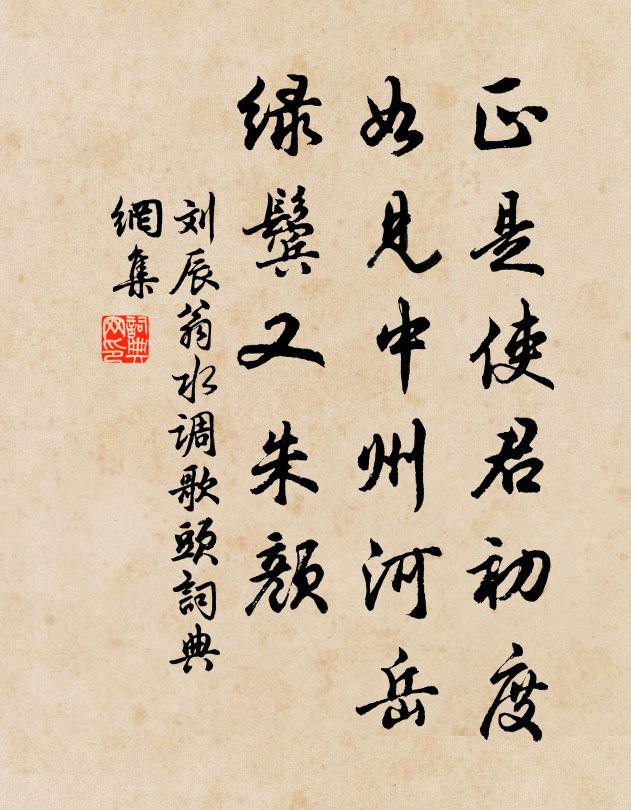 正是使君初度
如見中州河岳
绿鬓又朱颜
刘辰翁水调歌頭詞典
網集
詞典
网印